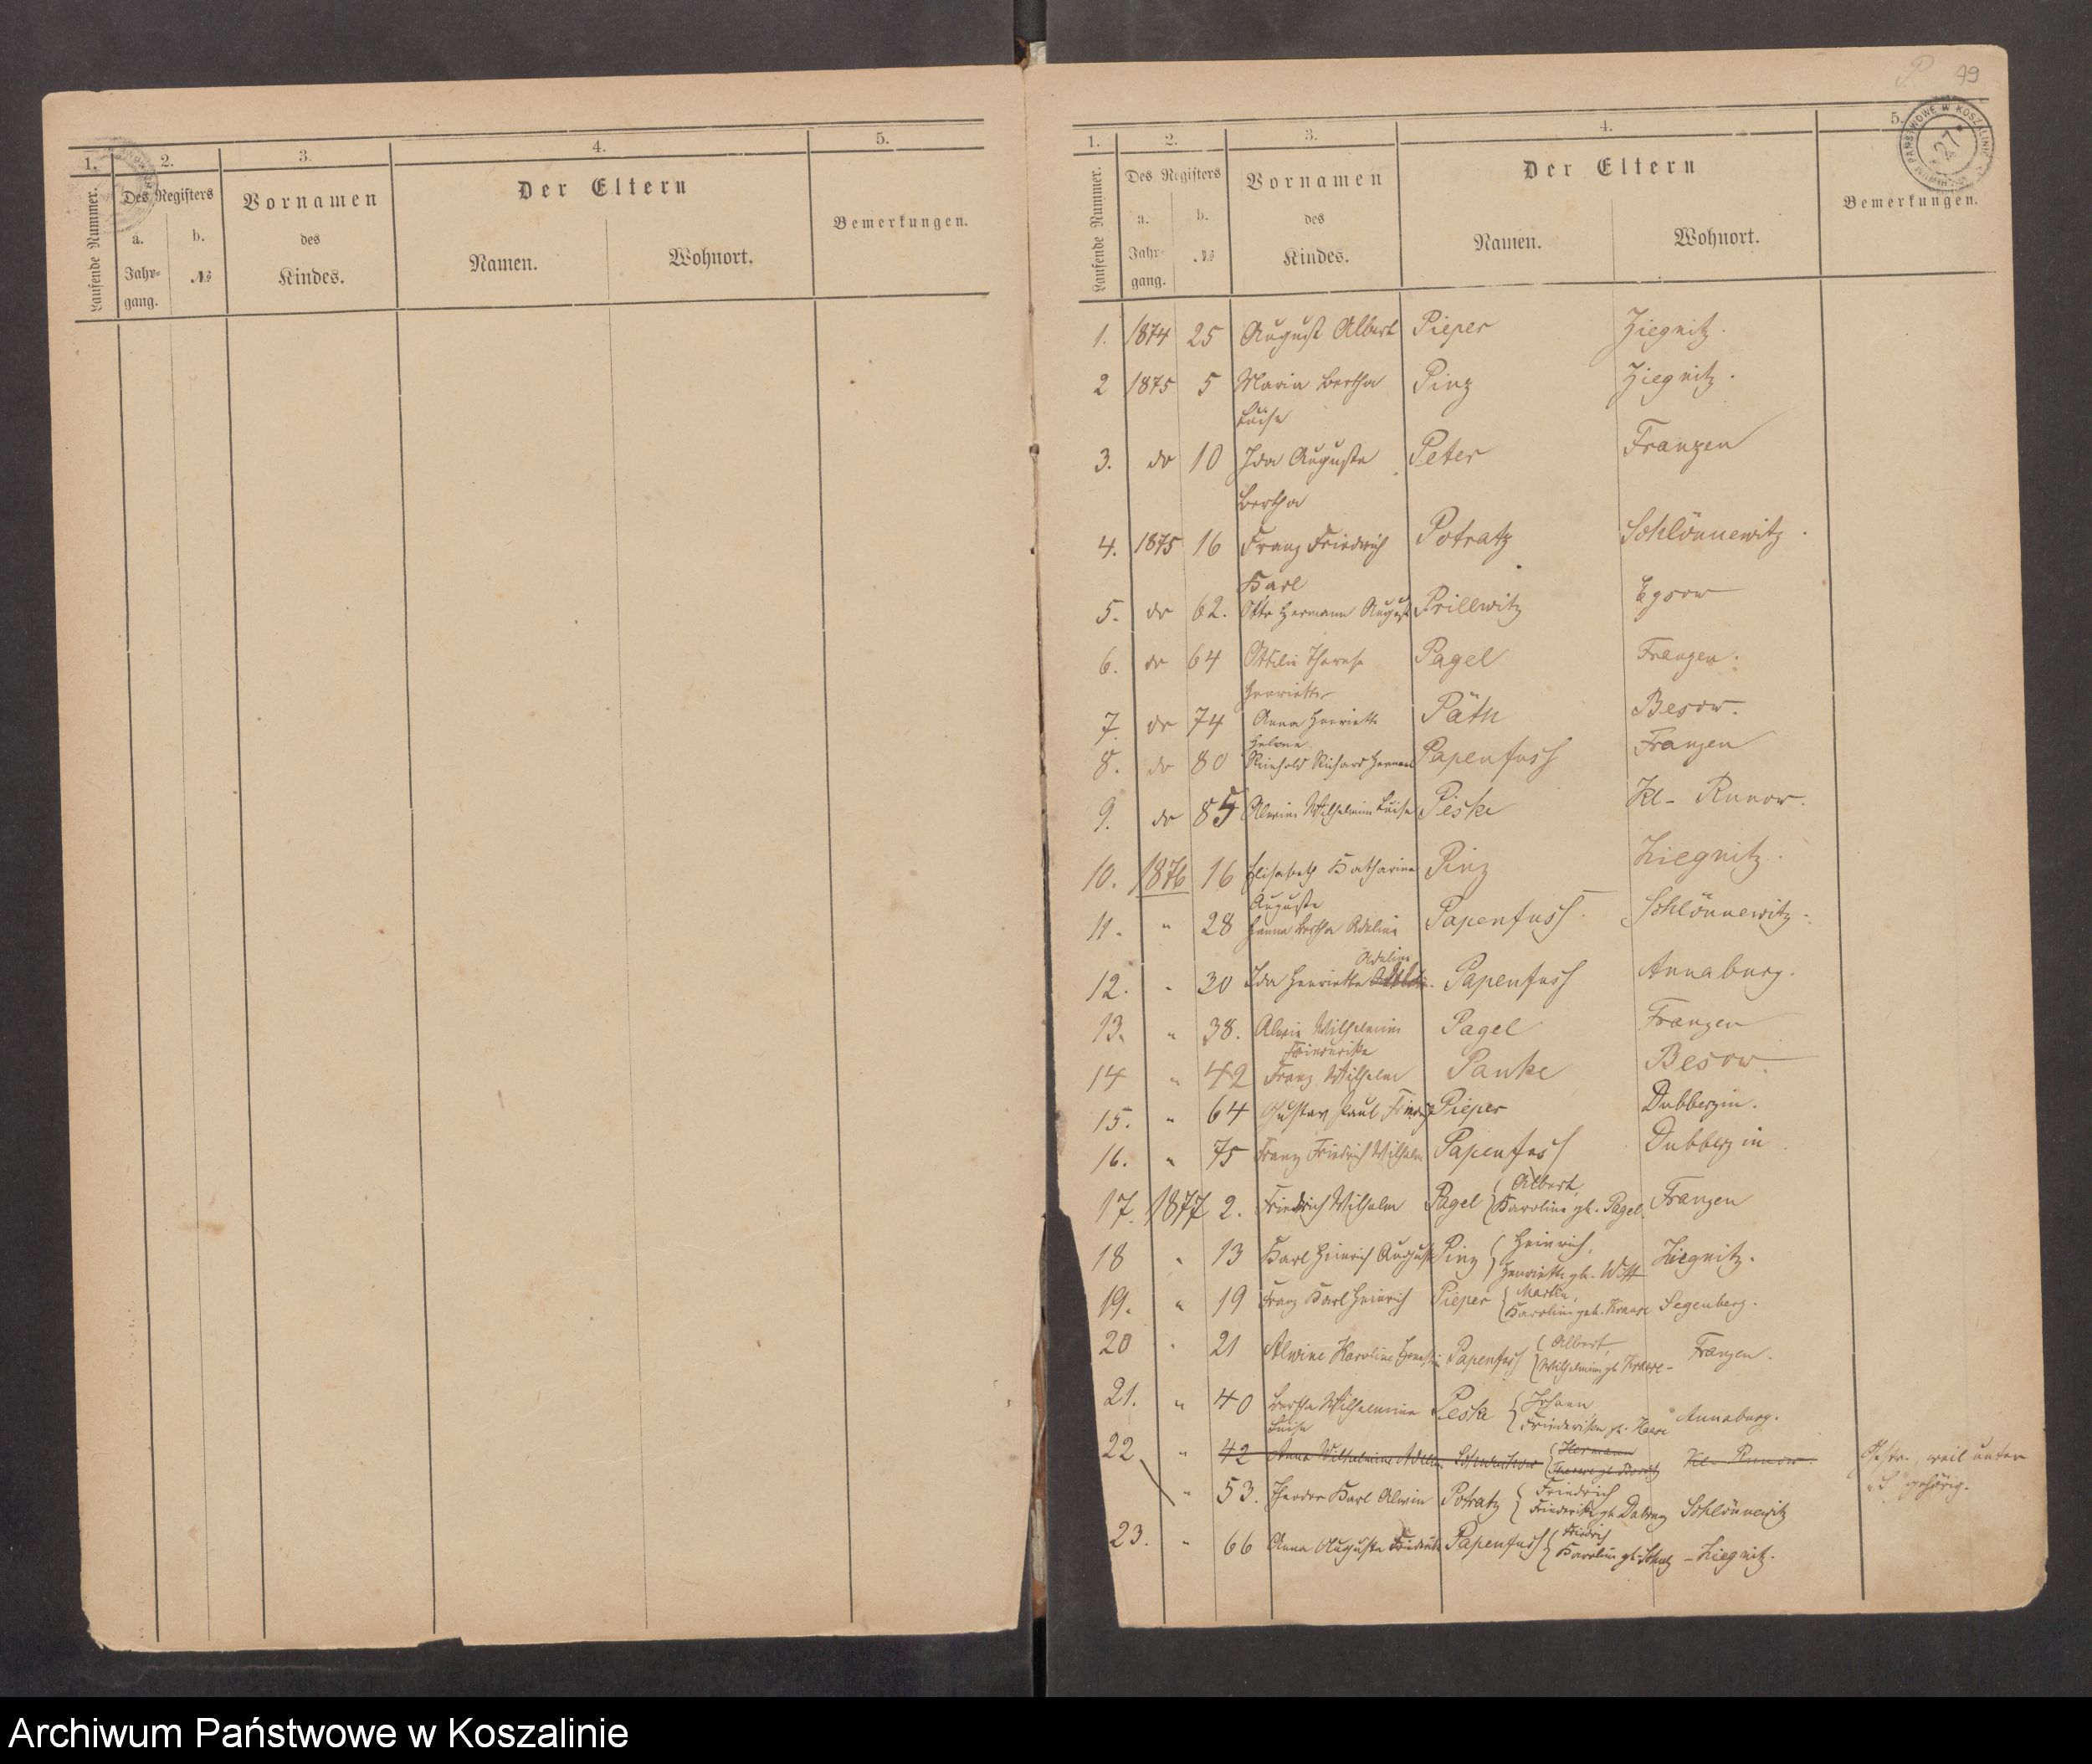 1. 2. 3. 4. 5.
Laufende Nummer. Des Registers Vornamen Der Eltern Bemerkungen.
a. b. des
Jahrgang. № Kindes. Namen. Wohnort.
P. 49
1. 2. 3. 4. 5.
PAŃSTWOWE W KOSZALINIE
27
Laufende Nummer. Des Registers Vornamen Der Eltern Bemerkungen.
a. b. des
Jahrgang. № Kindes. Namen. Wohnort.
1. 1874 25 August Albert Pieper Ziegnitz.
2 1875 5 Maria Bertha Pinz Ziegnitz.
Luise
3. do 10 Ida Auguste Peter Franzen
Bertha
4. 1875 16 Franz Friedrich Potratz Schlönnewitz.
Karl
5. do 62. Otto Hermann August Prillwitz Egsow
6. do 64 Ottilie Therese Pagel Franzen.
Henriette
7. do 74 Anna Henriette Päth Besow.
Helene
8. do 80 Reinhold Richard Hermann Papenfuss Franzen
9. do 85 Alwine Wilhelmine Luise Peske Kl- Runow.
10. 1876 16 Elisabeth Katharina Pinz Ziegnitz.
Auguste
11. " 28 Hanna Bertha Adeline Papenfuss. Schlönnewitz.
Adeline
12. " 30 Ida Henriette Papenfuss Annaburg.
13. " 38. Alwine Wilhelmine Pagel Franzen
Friederike
14 " 42 Franz Wilhelm Panke Besow.
15. " 64 Gustav Paul Friedrich Pieper Dubberzin.
16. " 75 Franz Friedrich Wilhelm Papenfuss Dubberzin.
17. 1877 2. Friedrich Wilhelm Pagel { Albert, Karoline gb. Pagel. Franzen
18 " 13 Karl Heinrich August Pinz { Heinrich, Henriette gb. Witt Ziegnitz.
19. " 19 Franz Karl Heinrich Pieper { Martin, Karoline geb. Krause Segenberg.
20 " 21 Alwine Karoline Ernestine Papenfuss { Albert, Wilhelmine gb Krause - Franzen.
21. " 40 Bertha Wilhelmine Peske { Johann Friederike gb. Haase Annaburg.
Luise
22 " 42 Anna Wilhelmine Adeline { Hermann Therese gb Kl- Runow. Gestr., weil unter
" 53. Theodor Karl Alwin Potratz { Friedrich Friederike gb Schlönnewitz S gehörig.
23. " 66 Anna Auguste Friederike Papenfuss { Friedrich Karoline gb. Schulz - Ziegnitz.
Archiwum Państwowe w Koszalinie